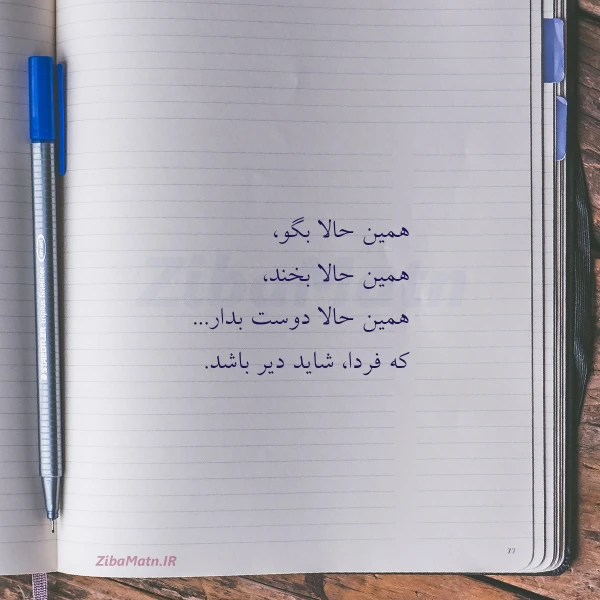 همین حالا بگو،
همین حالا بخند،
همین حالا دوست بدار...
که فردا، شاید دیر باشد.
ZibaMatn
ZibaMatn.IR
77